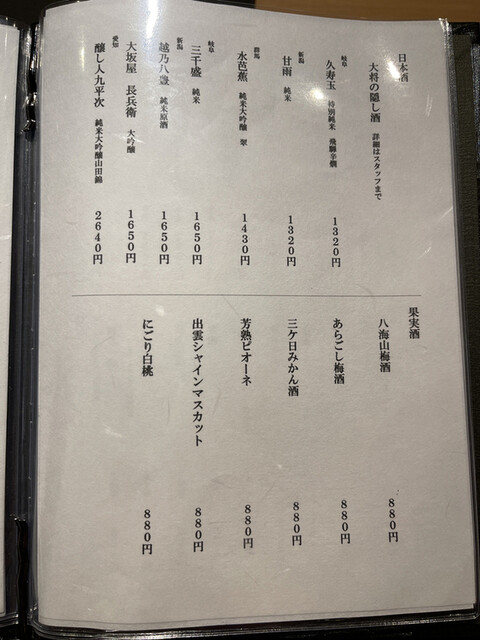 日本酒
大将の隠し酒 詳細はスタッフまで
岐阜
久寿玉 特別純米 飛騨辛燗 1320円
甘雨 純米 1320円
群馬
水芭蕉 純米大吟醸 翠 1430円
岐阜
三千盛 純米 1650円
新潟
越乃八豊 純米原酒 1650円
大坂屋 長兵衛 大吟醸 1650円
愛知
醸し人九平次 純米大吟醸山田錦 2640円
果実酒
八海山梅酒 880円
あらごし梅酒 880円
三ケ日みかん酒 880円
芳熟ピオーネ 880円
出雲シャインマスカット 880円
にごり白桃 880円